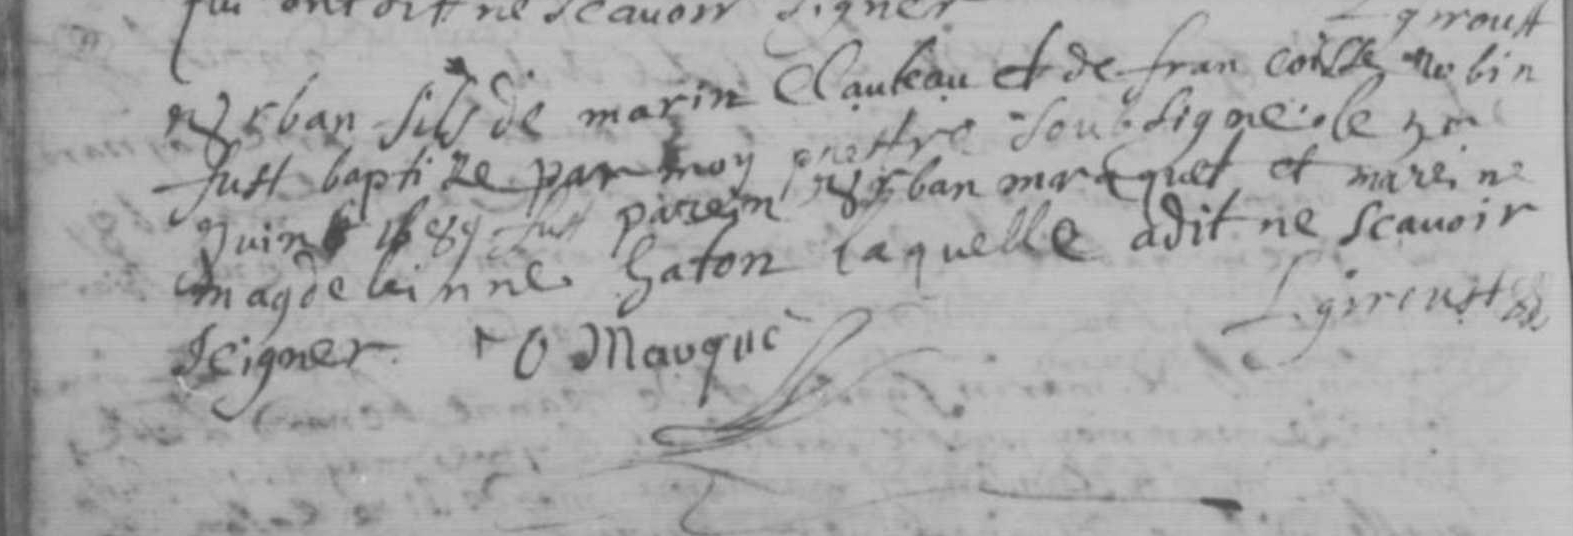 qui ont dit ne scavoir signer
Lgiroust
urban fils de marin Clauteau et de francoisse robin
fust baptize par moy prettre soubsigne le
Juin 1689 fut parein urban mauquet et mareine
magdelainne gaton laquelle a dit ne scavoir
seigner. V Mauque
Lgiroust